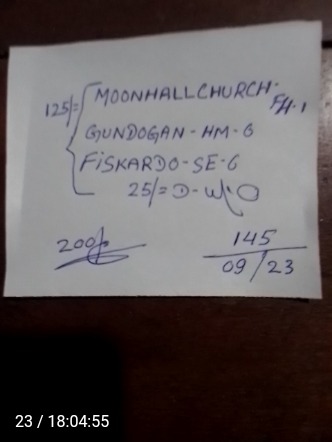 125/= MOONHALLCHURCH- FH.1
GUNDOGAN-HM-6
FiSKARDO-SE-6
25/=D-W.O
200/-
145
09/23
23 / 18:04:55